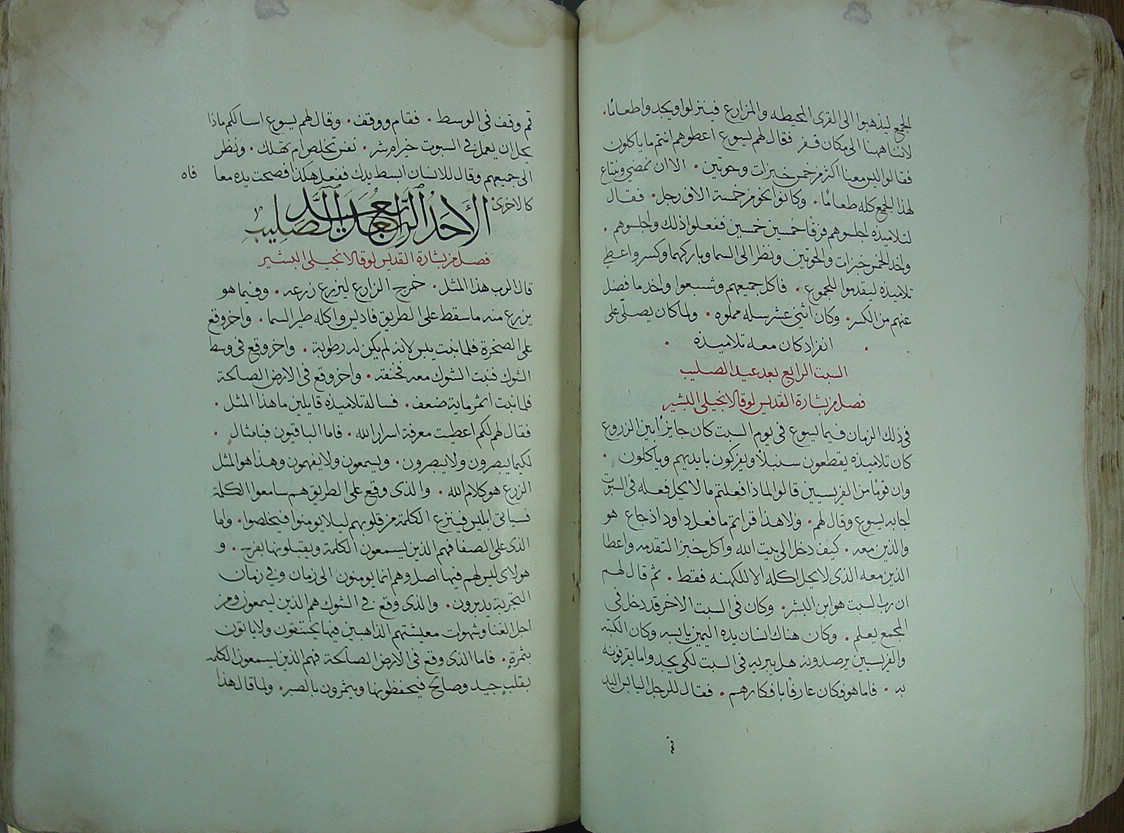 الجمع ليذهبوا الى القرى المحيطه والمزارع فينزلوا ويجدوا طعامًا ·
لاننا ههنا الى مكان قفر فقال لهم يسوع اعطوهم انتم ما ياكلون
فقالوا ليس معنا اكثر من خمس خبزات وحوتين · الا ان نمضي ونبتاع
لهذا الجمع كله طعامًا · وكانوا نحو من خمسة الاف رجل · فقال
لتلاميذه اجلسوهم فرقا خمسين خمسين ففعلوا ذلك واجلسوهم ·
واخد الخمس خبزات والحوتين ونظر الى السما وباركهما وكسر واعطى
تلاميذه ليقدموا للجموع · فاكل جميعهم وشبعوا واخد ما فضل
عنهم من الكسر · وكان اثنى عشر سله مملوه · ولما كان يصلّي على
انفراد كان معه تلاميذه ·
السبت الرابع بعد عيد الصليب
فصل من بشارة القديس لوقا الانجيلي البشير
في ذلك الزمان فيما يسوع في يوم السبت كان جايز ابين الزروع
كان تلاميذه يقطعون سنبلا ويفركون بايديهم وياكلون ·
وان قومًا من الفريسيين قالوا لماذا فعلتم ما لا يحل فعله في السبوت
اجابه يسوع وقال لهم · ولا هذا قراتم ما فعل داود اذ جاع هو
والذين معه · كيف دخل الى بيت الله واكل خبز التقدمه واعطا
الذين معه الذى لا يحل اكله الا للكهنه فقط · ثم قال لهم
ان رب السبت هو ابن البشر · وكان في السبت الاخر قد دخل في
المجمع يعلم · وكان هناك انسان يده اليمين يابسه وكان الكتبه
والفريسيين يرصدونه هل يبريه في السبت لكي يجدوا ما يقرفونه
به · فاما هو فكان عارفا بافكارهم · فقال للرجل اليابس اليد
قم وقف في الوسط · فقام ووقف · وقال لهم يسوع اسالكم ماذا
يحل ان يعمل في السبوت خير ام شر · نفس تخلص ام تهلك · ونظر
الى جميعهم وقال للانسان ابسط يدك ففعل هكذا فصحت يده معافاه
كالاخرى
الاحد الرابع بعد عيد الصليب
فصل من بشارة القديس لوقا الانجيلي البشير
قال الرب هذا المثل · خرج الزارع ليزرع زرعه · وفيما هو
يزرع منه ما سقط على الطريق فاديس واكله طير السما · واخر وقع
على الصخرة فلما نبت يبس لانه لم يكن له رطوبة · واخر وقع في وسط
الشوك فنبت الشوك معه فخنقه · واخر وقع في الارض الصالحة
فلما نبت اثمر ماية ضعف · فساله تلاميذه قايلين ما هذا المثل ·
فقال لهم لكم اعطيت معرفة اسرار الله · فاما الباقيون فبامثال
لكيما يبصرون ولا يبصرون · ويسمعون ولا يفهمون وهذا هو المثل
الزرع هو كلام الله · والذى وقع على الطريق هم سامعوا الكلة
فياتي ابليس فينزع الكلمة من قلوبهم ليلا يومنوا فيخلصوا · واما
الذى على الصفا فهم الذين يسمعون الكلمة ويقبلونها بفرح · و
هولاى ليس لهم فيها اصل وهم انما يومنون الى زمان وفي زمان
التجربة يدبرون · والذى وقع في الشوك هم الذين يسمعون ومن
اجل الغنا وشهوات معيشتهم الذاهبين فيها يختنقون ولا ياتون
بثمرة · فاما الذى وقع في الارض الصالحة فهم الذين يسمعون الكلمه
بقلب جيد وصالح فيحفظونها ويثمرون بالصبر · ولما قال هذا